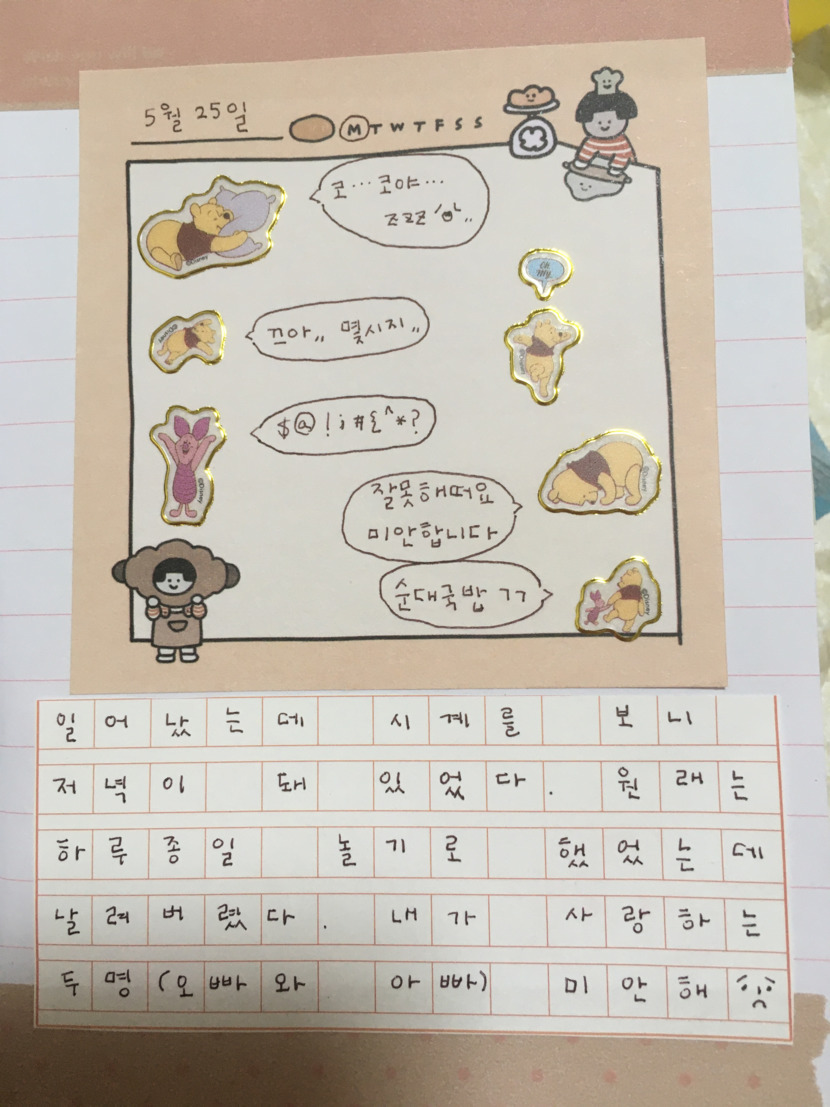 5월 25일
M T W T F S S
코… 코야…
zzz
Oh My
끄아,, 몇시지,,
$@!;#£^*?
잘못해떠요
미안합니다
순대국밥 ㄱㄱ
일어났는데 시계를 보니
저녁이 돼 있었다. 원래는
하루종일 놀기로 했었는데
날려버렸다. 내가 사랑하는
두명(오빠와 아빠) 미안해